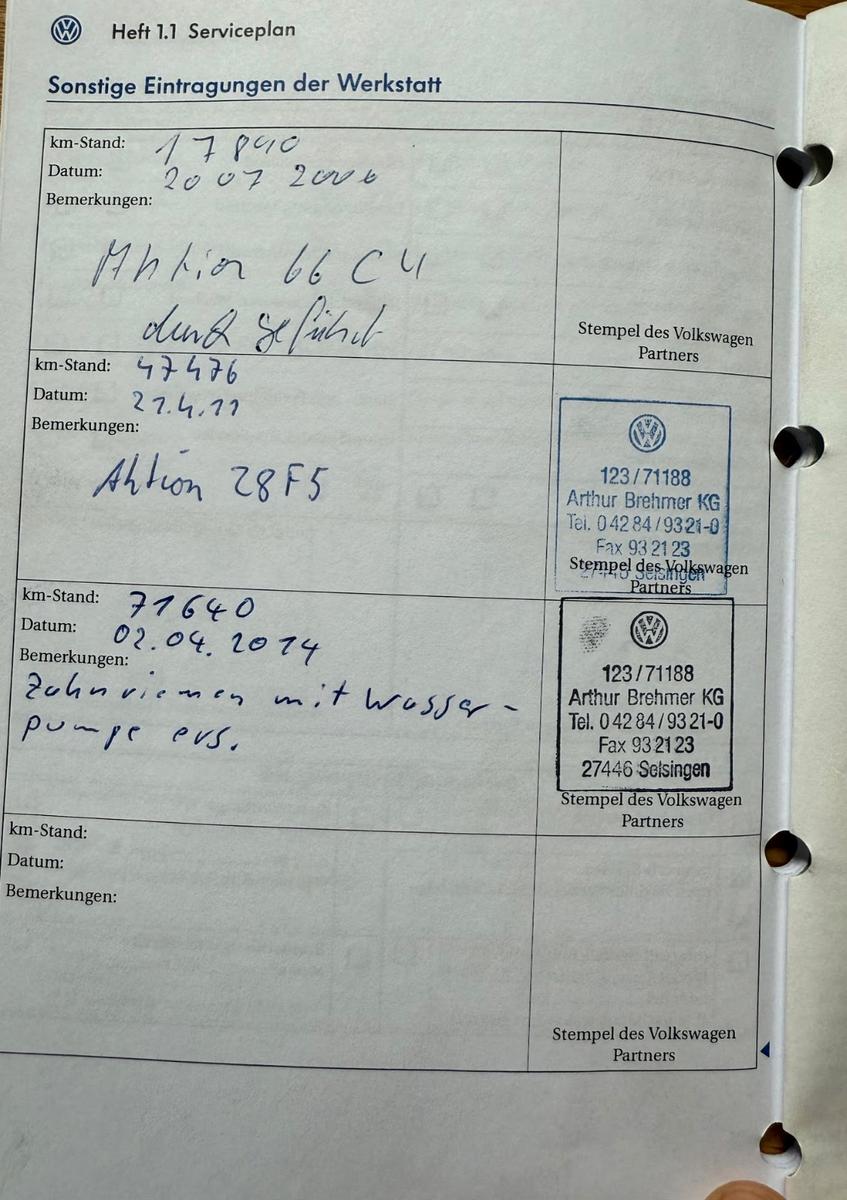 Heft 1.1 Serviceplan
Sonstige Eintragungen der Werkstatt
km-Stand: 17890
Datum: 20 07 2006
Bemerkungen:
Aktion 66 C4
durchgeführt
Stempel des Volkswagen
Partners
km-Stand: 47476
Datum: 21.4.11
Bemerkungen:
Aktion 28F5
123/71188
Arthur Brehmer KG
Tel. 0 42 84 / 93 21-0
Fax 93 21 23
27446 Selsingen
Stempel des Volkswagen
Partners
km-Stand: 71640
Datum: 02.04.2014
Bemerkungen:
Zahnriemen mit Wasser-
pumpe ers.
123/71188
Arthur Brehmer KG
Tel. 0 42 84 / 93 21-0
Fax 93 21 23
27446 Selsingen
Stempel des Volkswagen
Partners
km-Stand:
Datum:
Bemerkungen:
Stempel des Volkswagen
Partners